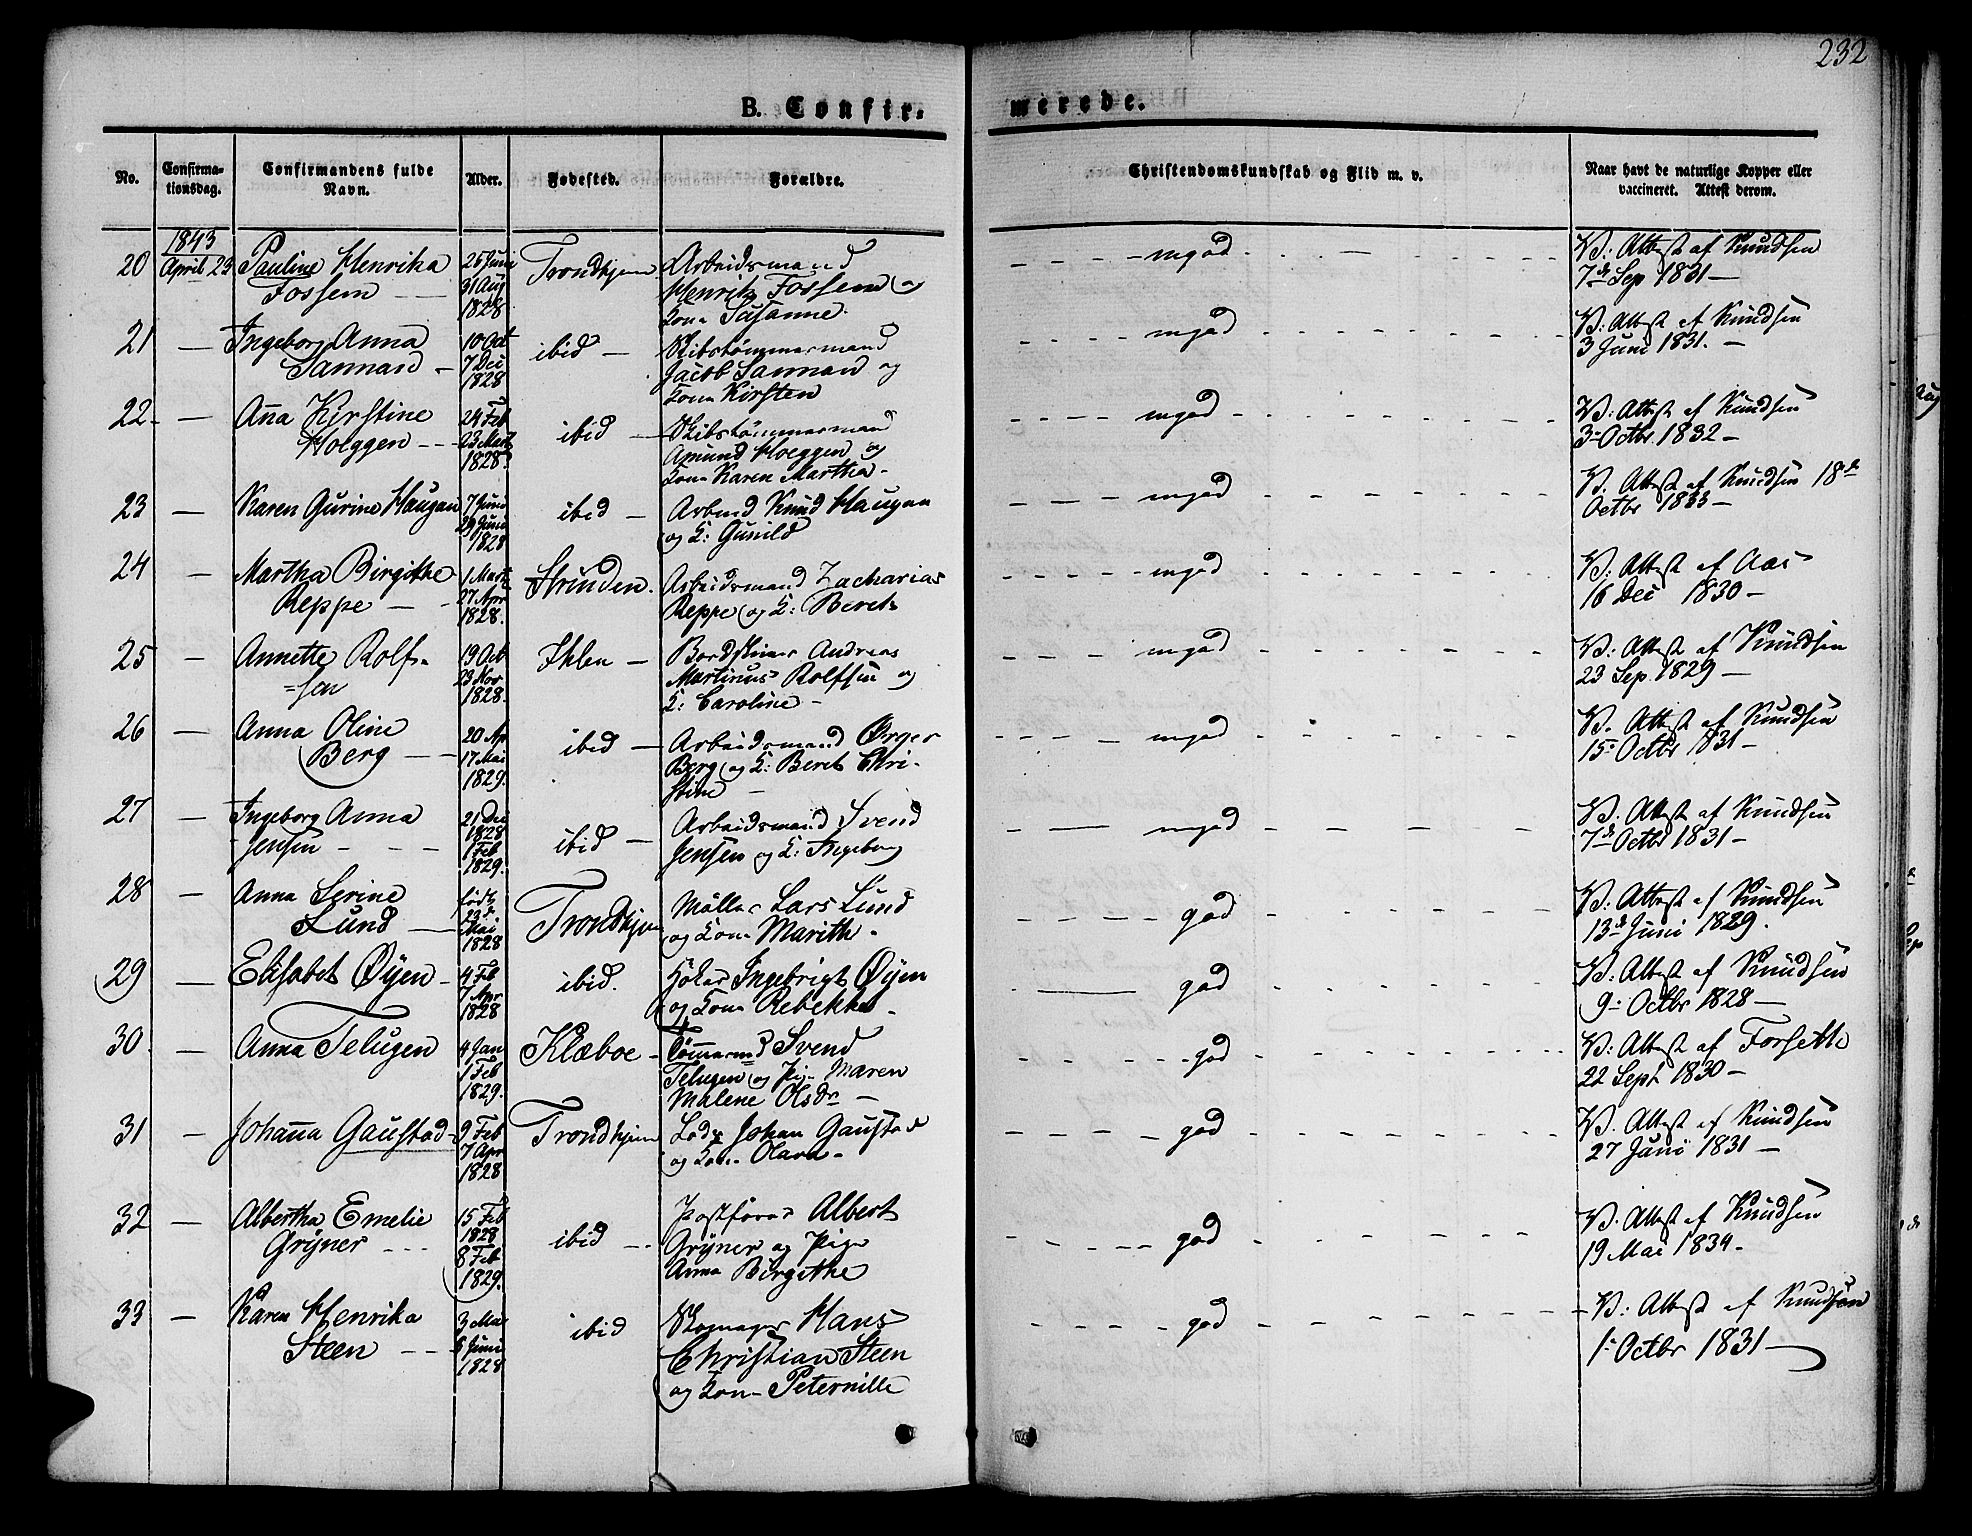 232
B. Confir-
merede.
No.
Confirma-
tionsdag.
Confirmandens fulde
Navn.
Alder.
Fødested.
Forældre.
Christendomskundskab og Flid m. v.
Naar havt de naturlige Kopper eller
vaccineret. Attest derom.
1843
20 April 23 Pauline Henrika
Fossem
25 Juni
31 Aug
1828
Trondhjem
Arbeidsmand
Henrik Fossem og
Kone Susanne
mgod
V: Attest af Knudsen
7de Sep 1831
21 — Ingeborg Anna
Sannan
10 Oct
7 Dec
1828
ibid
Skibstømmermand
Jacob Sannan og
Kone Kirsten
mgod
V: Attest af Knudsen
3 Juni 1831.
22 — Ana Kirstine
Hoeggen
24 Feb
23 Marts
1828
ibid
Skibstømmermand
Amund Hoeggen og
Kone Karen Martha
mgod
V: Attest af Knudsen
3 Octbr 1832
23 — Karen Gurine Haugan
7 Juni
29 Juni
1828
ibid
Arbmd Knud Haugan
og K: Gunild
mgod
V. Attest af Knudsen 18de
Octbr 1833
24 — Martha Birgithe
Reppe
1 Mart
27 Apr
1828.
Strinden.
Arbeidsmand Zacharias
Reppe og K: Beret
mgod
V: Attest af Aas
16 Dec 1830
25 — Annette Rolf-
sen
19 Oct
23 Nov
1828.
Ihlen
Andreas
Martinus Rolfsen og
K: Caroline
mgod
V: Attest af Knudsen
23 Sep. 1829
26 — Anna Oline
Berg
20 Ap
17 Mai
1829.
ibid
Arbeidsmand Ørger
Berg og K: Beret Chri-
stine
mgod
V. Attest af Knudsen
15 Octbr 1831
27 — Ingeborg Anna
Jensen
21 Dec
1828
1 Feb
1829.
ibid
Arbeidsmand Svend
Jensen og K: Ingeborg
mgod
V. Attest af Knudsen
7de Octbr 1831
28 — Anna Serine
Lund
født
23de
Mai
1828
Trondhjem
Møller Lars Lund
og Kone Marith
god
V: Attest af Knudsen
13de Juni 1829.
29 — Elisabet Øyen
4 Feb
7 Apr
1828
ibid.
Høker Ingebrigt Øyen
og Kone Rebekka
god
V: Attest af Knudsen
9 Octbr 1828
30 — Anna Telugen
4 Jan
1 Feb
1829.
Klæboe
Tømmermd Svend
Telugen og Pige Maren
Malene Olsdr
god
V: Attest af Forseth
22 Sept 1830
31 — Johanna Gaustad
9 Feb
7 Apr
1828
Trondhjem
Lods Johan Gaustad
og Kone Olava
god
V. Attest af Knudsen
27 Juni 1831
32 — Albertha Emelie
Gryner
15 Feb
1828
8 Feb
1829.
ibid
Postfører Albert
Gryner og Pige
Anna Birgithe
god
V. Attest af Knudsen
19 Mai 1834
33 — Karen Henrika
Steen
3 Mai
8 Juni
1828
ibid
Skomager Hans
Christian Steen
og Kone Peternille
god
V: Attest af Knudsen
1 Octbr 1831